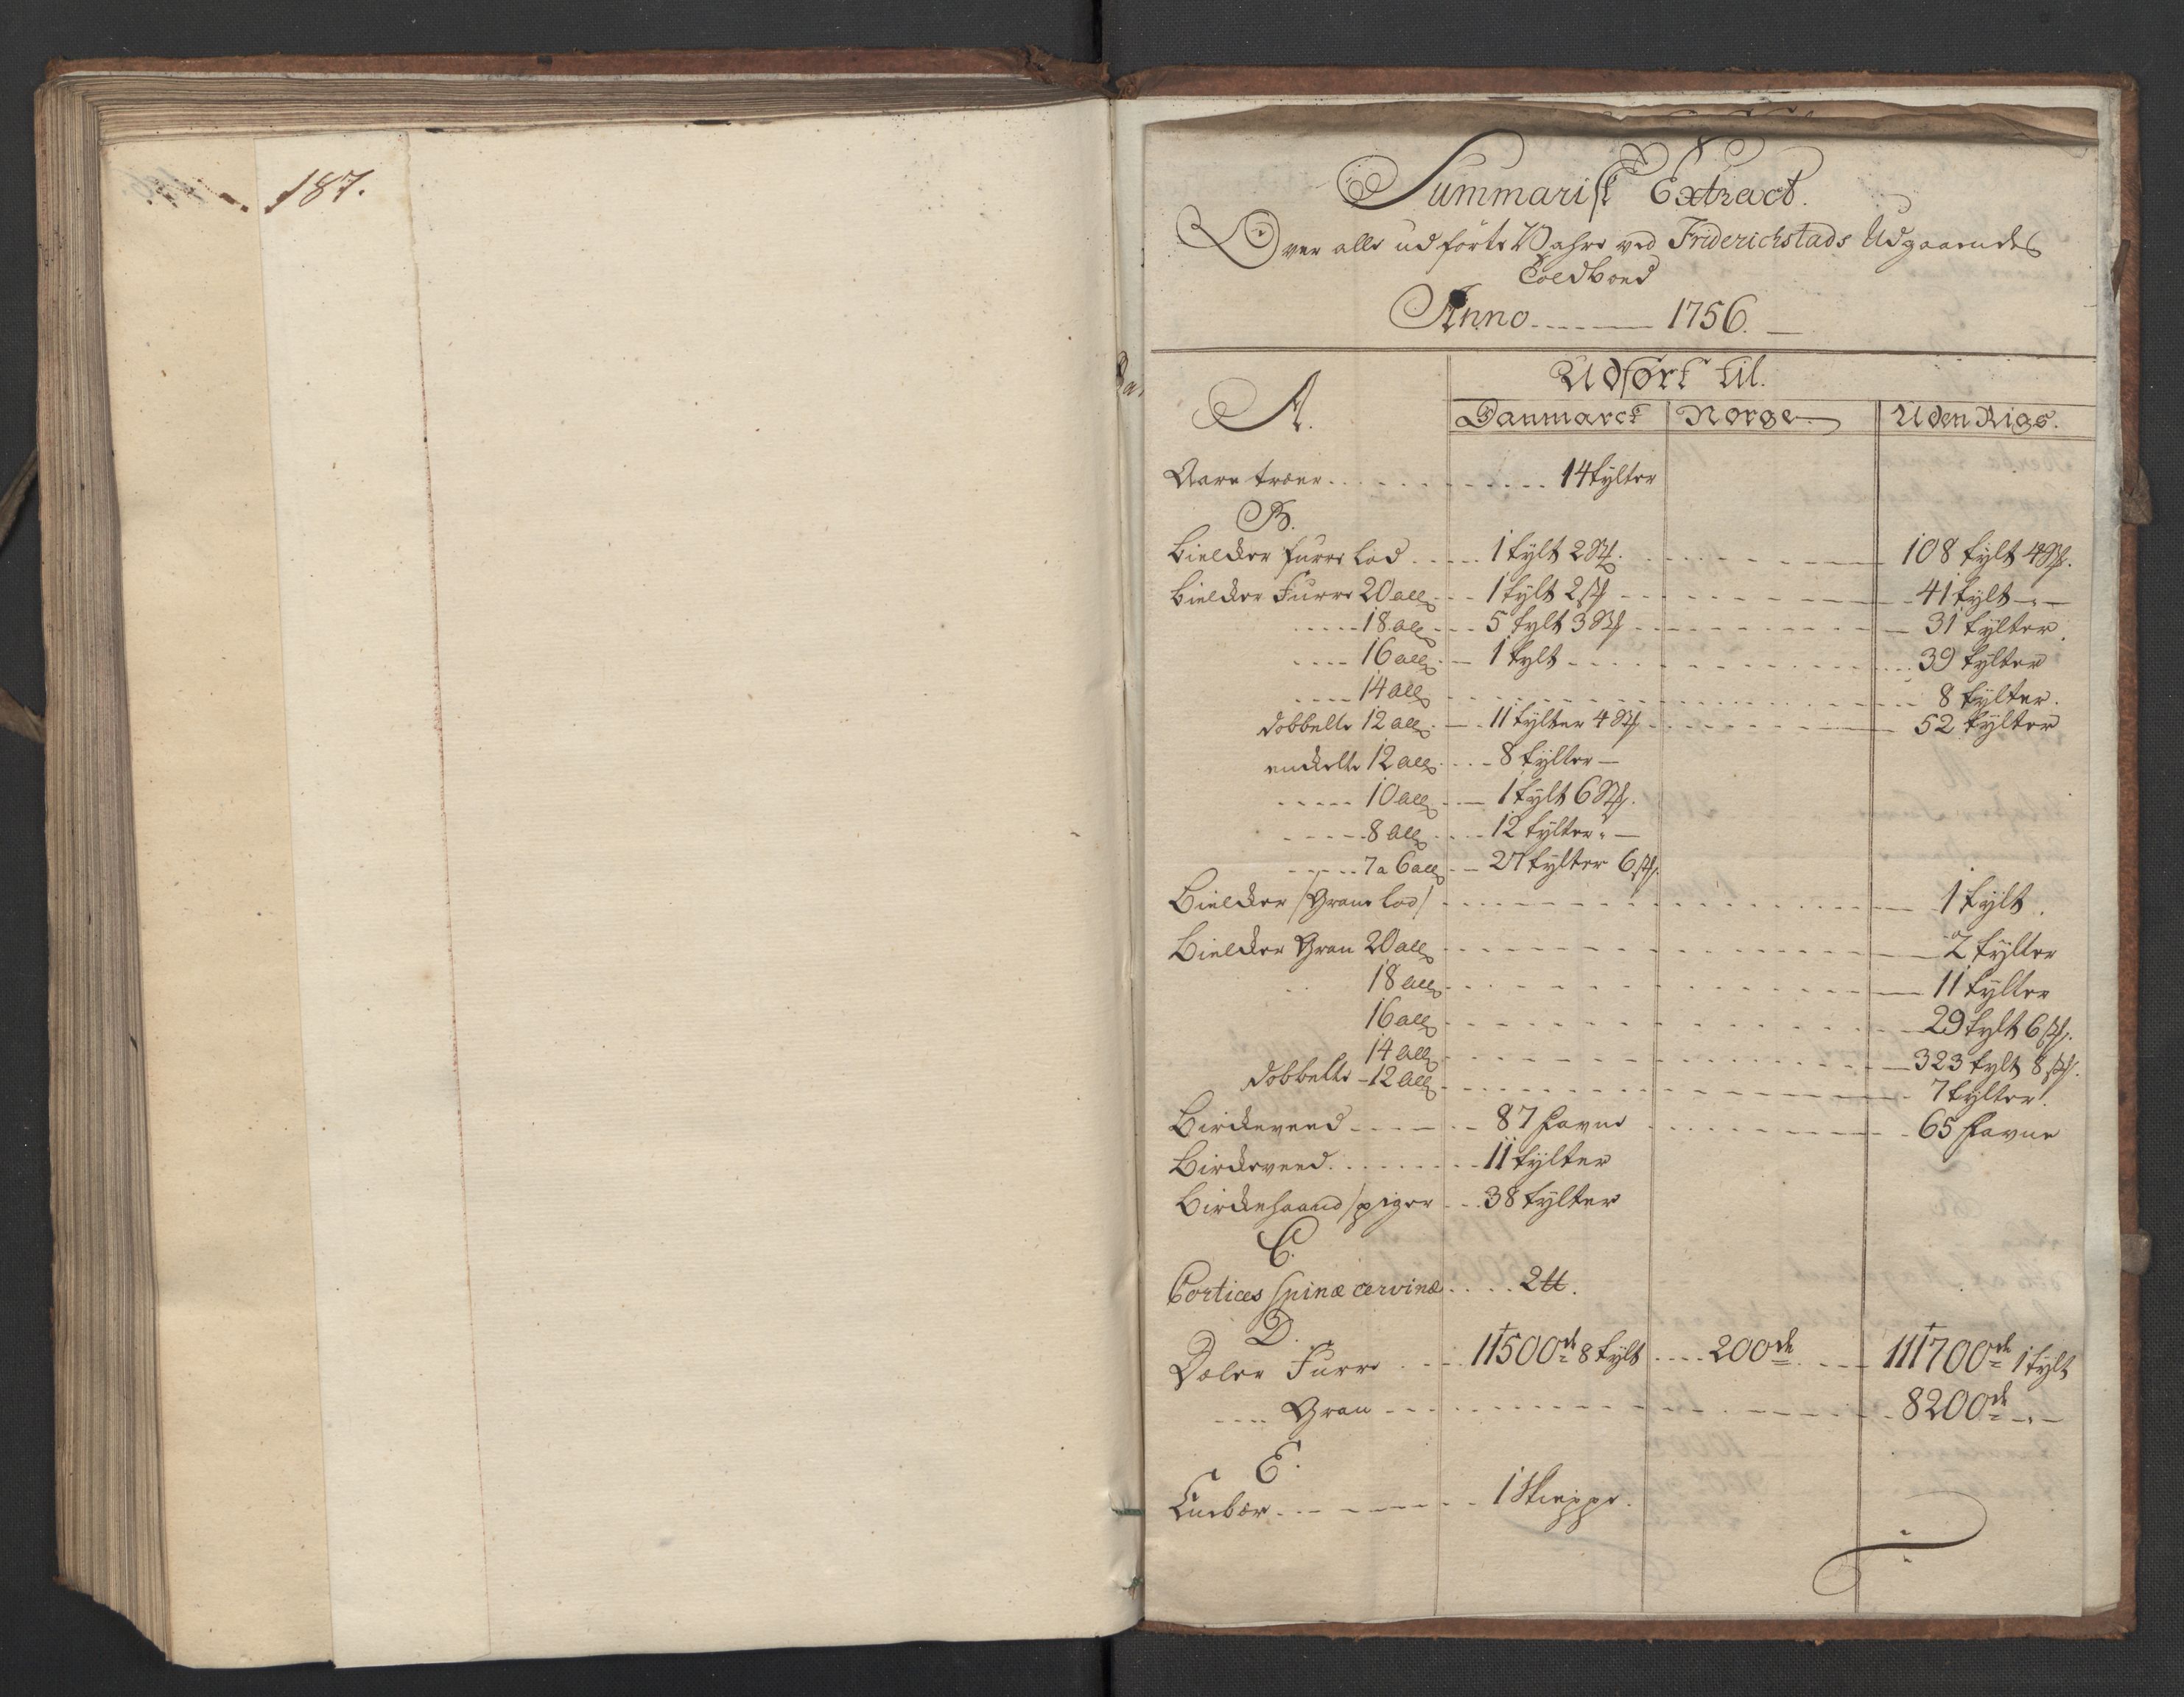 187.
Summarisk Extract.
Over alle udførte Wahre ved Friderichstads Udgaaende
Toldboed
Anno 1756.
Udført til.
A. Danmarck Norge Uden Rigs.
Aare træer 14 tylter
B.
Bielcker furre Lod 1 tylt 2 St. 108 tylt 4 St.
Bielcker Furre 20 all 1 tylt 2 St 41 tylt
18 all 5 tylt 3 St 31 tylter
16 all 1 tylt 39 tylter
14 all 8 tylter.
dobbelte 12 all 11 tylter 4 St 52 tylter
enckelte 12 all 8 tylter
10 all 1 tylt 6 St.
8 all 12 tylter
7 a 6 all 27 tylter 6 St.
Bielcker /Grane Lod/ 1 tylt
Bielcker Gran 20 all 2 tylter
18 all 11 tylter
16 all 29 tylt 6 St.
14 all 323 tylt 8 St.
dobbelte 12 all 7 tylter.
Birckeveed 87 Favne 65 Favne
Birckeveed 11 tylter
Birckehaandspiger 38 tylter
C.
Cortices Spinæ cervinæ 2 ℔.
D.
Dæler Furre 11500 de 8 tylt 200 de 111700 de 1 tylt
Gran 8200 de
E.
Eenbær 1 Skieppe.